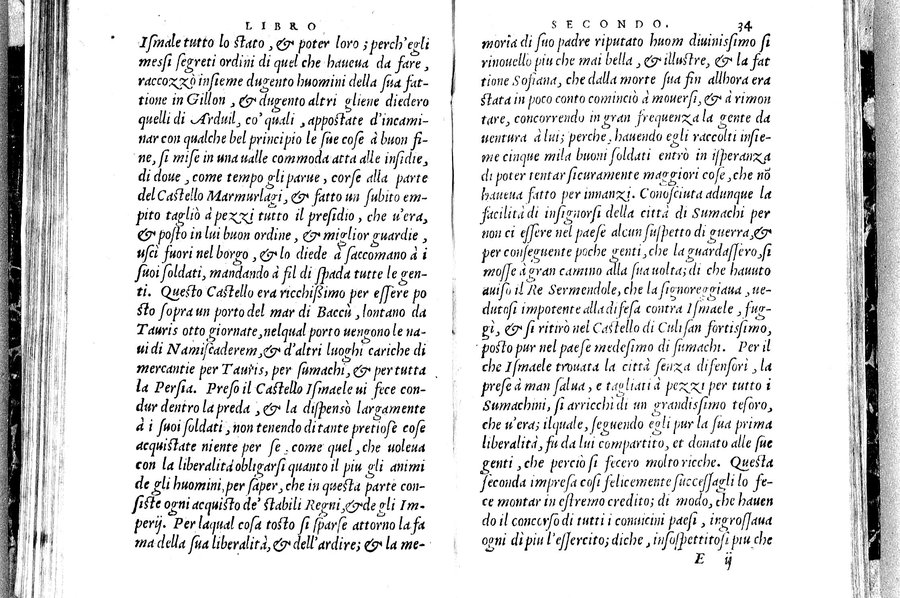 LIBRO
Ismale tutto lo stato, & poter loro; perch'egli
messi segreti ordini di quel che haueua da fare,
raccozzò insieme dugento huomini della sua fat-
tione in Gillon, & dugento altri gliene diedero
quelli di Arduil, co' quali, appostate d'incami-
nar con qualche bel principio le sue cose à buon fi-
ne, si mise in una ualle commoda atta alle insidie,
di doue, come tempo gli parue, corse alla parte
del Castello Marmurlagi, & fatto un subito em-
pito tagliò à pezzi tutto il presidio, che u'era,
& posto in lui buon ordine, & miglior guardie,
uscì fuori nel borgo, & lo diede à saccomano à i
suoi soldati, mandando à fil di spada tutte le gen-
ti. Questo Castello era ricchissimo per essere po
sto sopra un porto del mar di Baccù, lontano da
Tauris otto giornate, nelqual porto uengono le na-
ui di Namiscaderem, & d'altri luoghi cariche di
mercantie per Tauris, per sumachi, & per tutta
la Persia. Preso il Castello Ismaele ui fece con-
dur dentro la preda, & la dispensò largamente
à i suoi soldati, non tenendo di tante pretiose cose
acquistate niente per se, come quel, che uoleua
con la liberalità obligarsi quanto il piu gli animi
de gli huomini, per saper, che in questa parte con-
siste ogni acquisto de' stabili Regni, & de gli Im-
perij. Per laqual cosa tosto si sparse attorno la fa
ma della sua liberalità, & dell'ardire; & la me-
SECONDO. 34
moria di suo padre riputato huom diuinissimo si
rinouello piu che mai bella, & illustre, & la fat
tione Sofiana, che dalla morte sua fin allhora era
stata in poco conto cominciò à mouersi, & à rimon
tare, concorrendo in gran frequenza la gente da
uentura à lui; perche, hauendo egli raccolti insie-
me cinque mila buoni soldati entrò in isperanza
di poter tentar sicuramente maggiori cose, che nõ
haueua fatto per innanzi. Conosciuta adunque la
facilità di insignorsi della città di Sumachi per
non ci essere nel paese alcun suspetto di guerra, &
per conseguente poche genti, che la guardassero, si
mosse à gran camino alla sua uolta; di che hauuto
auiso il Re Sermendole, che la signoreggiaua, ue-
dutosi impotente alla difesa contra Ismaele, fug-
gì, & si ritirò nel Castello di Culisan fortissimo,
posto pur nel paese medesimo di sumachi. Per il
che Ismaele trouata la città senza difensori, la
prese à man salua, e tagliati à pezzi per tutto i
Sumachini, si arricchì di un grandissimo tesoro,
che u'era; ilquale, seguendo egli pur la sua prima
liberalità, fu da lui compartito, et donato alle sue
genti, che perciò si fecero molto ricche. Questa
seconda impresa così felicemente successagli lo fe-
ce montar in estremo credito; di modo, che hauen
do il concorso di tutti i conuicini paesi, ingrossaua
ogni dì piu l'essercito; diche, insospettitosi piu che
E ij